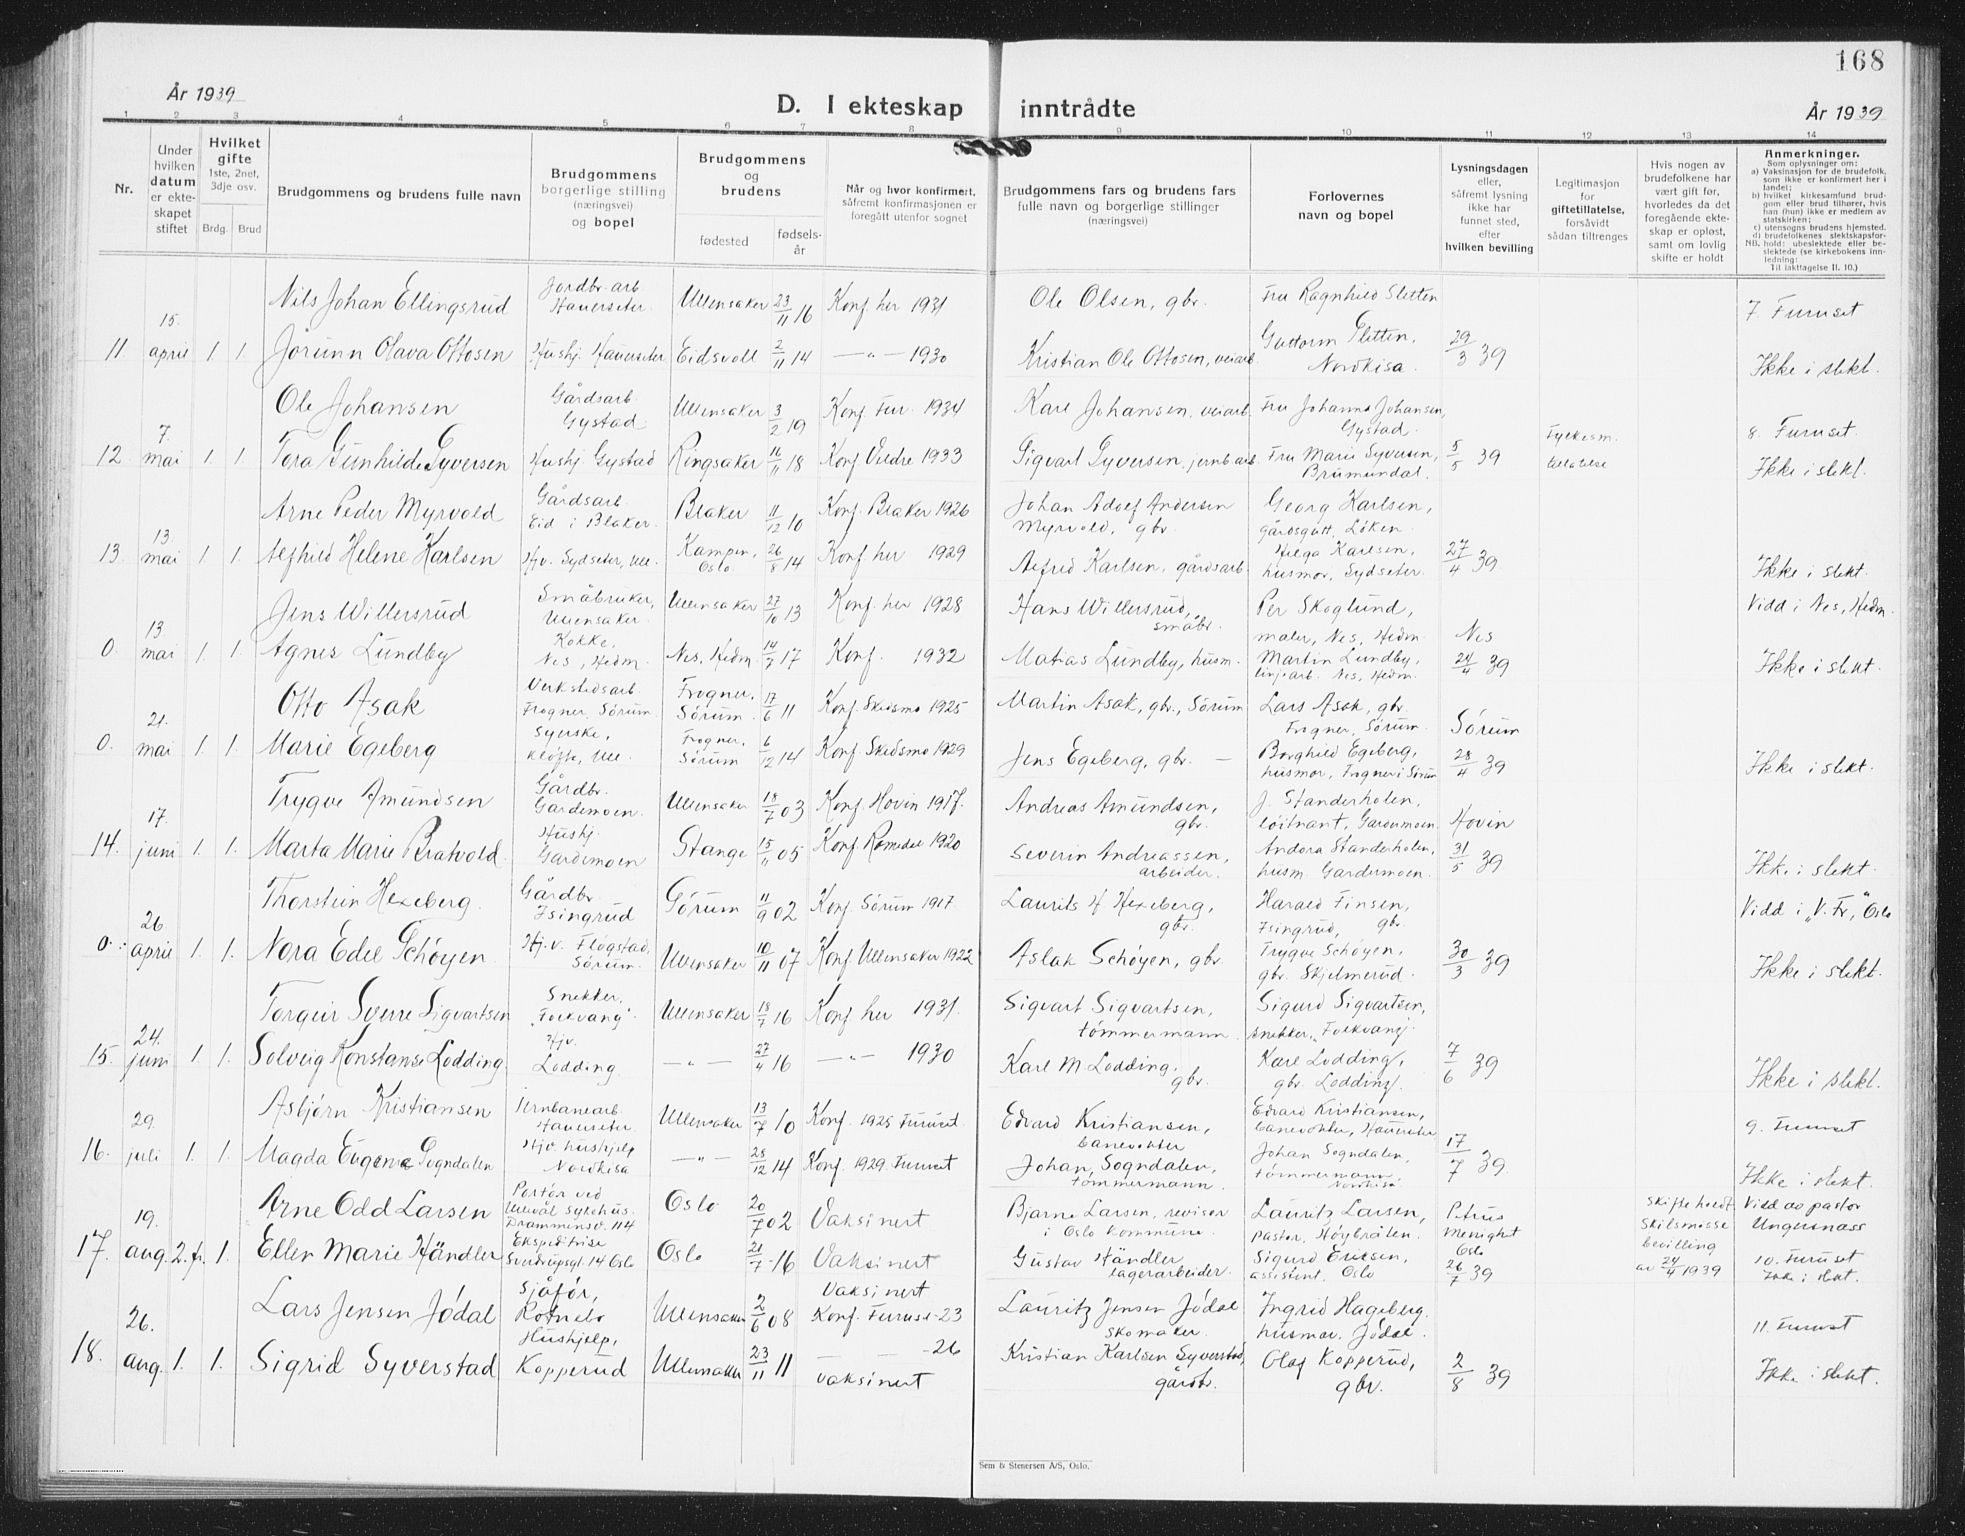 168
År 1939
D. I ekteskap inntrådte
År 1939
1 2 3 4 5 6 7 8 9 10 11 12 13 14
Nr.
Under hvilken datum er ekteskapet stiftet
Hvilket gifte 1ste, 2net, 3dje osv.
Brdg. Brud
Brudgommens og brudens fulle navn
Brudgommens borgerlige stilling (næringsvei) og bopel
Brudgommens og brudens
fødested
fødselsår
Når og hvor konfirmert, såfremt konfirmasjonen er foregått utenfor sognet
Brudgommens fars og brudens fars fulle navn og borgerlige stillinger (næringsvei)
Forlovernes navn og bopel
Lysningsdagen eller, såfremt lysning ikke har funnet sted, efter hvilken bevilling
Legitimasjon for giftetillatelse, forsåvidt sådan tiltrenges
Hvis nogen av brudefolkene har vært gift før, hvorledes da det foregående ekteskap er opløst, samt om lovlig skifte er holdt
Anmerkninger.
Som oplysninger om:
a) Vaksinasjon for de brudefolk, som ikke er konfirmert her i landet;
b) hvilket kirkesamfund brudgom eller brud tilhører, hvis han (hun) ikke er medlem av statskirken;
c) utensogns brudens hjemsted.
d) brudefolkenes slektskapsforhold: ubeslektede eller beslektede (se kirkebokens innledning:
NB.
Til iakttagelse II. 10.)
Nils Johan Ellingsrud Jordbr. arb. Hauerseter. Ullensaker 23/11 16 Konf her 1931 Ole Olsen, gbr. Fru Ragnhild Sletten 7. Furuset
11 15. april 1. 1. Jorunn Olava Ottosen Hushj. Hauerseter Eidsvoll 2/11 14 —„— 1930 Kristian Ole Ottosen, veiarb. Guttorm Sletten, Nordkisa. 29/3 39 Ikke i slekt.
Ole Johansen Gårdsarb. Gystad Ullensaker 3/2 19 Konf Fur. 1934 Karl Johansen, veiarb. Fru Johanna Johansen, Gystad. 8. Furuset.
12 7. mai 1. 1. Tora Gunhilde Syversen Hushj. Gystad Ringsaker 16/11 18 Konf Veldre 1933 Sigvart Syversen, jernb.arb. Fru Marie Syversen, Brumundal. 5/5 39 Fylkesm. tillatelse Ikke i slekt.
Arne Peder Myrvold Gårdsarb. Eid i Blaker. Blaker 11/12 10 Konf. Blaker 1926 Johan Adolf Andersen Myrvold, gbr. Georg Karlsen, gårdsgutt, Löken.
13. 13. mai 1. 1. Alfhild Helene Karlsen Hjv. Sydseter, Ull. Kampen, Oslo 26/8 14 Konf her 1929 Alfred Karlsen, gårdsarb. Helga Karlsen, husmor, Sydseter. 27/4 39 Ikke i slekt.
Jens Willersrud Småbruker, Ullensaker. Ullensaker 27/10 13 Konf. her 1928 Hans Willersrud, småbr. Per Skoglund, maler, Nes, Hedm. Vidd i Nes, Hedm.
0. 13. mai 1. 1. Agnes Lundby Kokke, Nes, Hedm. Nes, Hedm. 14/7 17 Konf. 1932 Matias Lundby, husm. Martin Lundby, linjearb. Nes, Hedm. Nes 24/4 39 Ikke i slekt.
Otto Asak Verkstedsarb. Frogner, Sörum Frogner, Sörum. 17/6 11 Konf. Skedsmo 1925 Martin Asak, gbr., Sörum Lars Asak, gbr. Frogner, Sörum.
0. 21. mai 1. 1. Marie Egeberg Syerske, Klöfta, Ull. Frogner, Sörum 6/12 14 Konf Skedsmo 1929 Jens Egeberg, gbr. — Borghild Egeberg, husmor, Frogner i Sörum Sörum 28/4 39 Ikke i slekt.
Trygve Amundsen Gårdbr. Gardemoen. Ullensaker 18/7 03 Konf. Hovin 1917. Andreas Amundsen, gbr. J. Standerholen, löitnant, Gardermoen.
14. 17. juni 1. 1. Marta Marie Bratvold. Hushj. Gardemoen Stange 15/11 05 Konf. Romedal 1920 Severin Andreassen, arbeider. Andora Standerholen, husm. Gardermoen. Hovin 31/5 39 Ikke i slekt.
Thorstein Hexeberg. Gårdbr. Isingrud Sörum 11/9 02 Konf. Sörum 1917. Laurits H Hexeberg, gbr. Harald Finsen, Isingrud, gbr. Vidd i „V. Fr.“ Oslo
0. 26. april 1. 1. Nora Edel Schöyen Hj.v. Flögstad, Sörum. Ullensaker 10/11 07 Konf Ullensaker 1922 Aslak Schöyen, gbr. Trygve Schöyen, gbr. Skjelmerud. 30/3 39 Ikke i slekt.
Torgeir Sverre Sigvartsen Snekker, „Folkvang“. Ullensaker 18/7 16 Konf her 1931. Sigvart Sigvartsen, tömmermann. Sigurd Sigvartsen, snekker, „Folkvang“.
15. 24. juni 1. 1. Solveig Konstanse Lodding Hjv. Lodding. —„— 27/4 16 —„— 1930 Karl M Lodding, gbr. Karl Lodding, gbr. Lodding. 7/6 39 Ikke i slekt.
Asbjörn Kristiansen Jernbanearb. Hauerseter Ullensaker 13/7 10 Konf. 1925 Furuset Edvard Kristiansen, banevokter Edvard Kristiansen, banevokter, Hauerseter 9. Furuset
16. 29. juli 1. 1. Magda Eugenie Sogndalen Hjv. hushjelp Nordkisa —„— 28/12 14 Konf. 1929. Furuset Johan Sogndalen, tömmermann. Johan Sogndalen, tömmermann Nordkisa 17/7 39. Ikke i slekt.
Arne Odd Larsen Portör ved Ullevål sykehus. Drammensv. 114 Oslo 20/7 02 Vaksinert Bjarne Larsen, revisor i Oslo Kommune. Lauritz Larsen, pastor, Höybråten. Vidd av pastor Ungersnæss
17. 19. aug. 2. fr. 1. Ellen Marie Händler Ekspeditrise Sverdrupsgt. 14 Oslo Oslo 21/7 16 Vaksinert Gustav Händler lagerarbeider. Sigurd Ericsen, assistent. Oslo Petrus Menighet Oslo 26/7 39 Skifte holdt Skilsmisse bevilling av 24/4 1939 10. Furuset Ikke i slekt.
Lars Jensen Jödal Sjåför, Rotnebo Ullensaker 2/6 08 Vaksinert Konf. Furuset -23 Lauritz Jensen Jödal skomaker. Ingrid Hageberg, husmor, Jödal. 11. Furuset
18. 26. aug. 1. 1. Sigrid Syverstad Hushjelp, Kopperud Ullensaker 23/11 11 — — -26 vaksinert Kristian Karlsen Syverstad, gårdbr. Olaf Kopperud, gbr. 2/8 39 Ikke i slekt.
Sem & Stenersen A/S, Oslo.